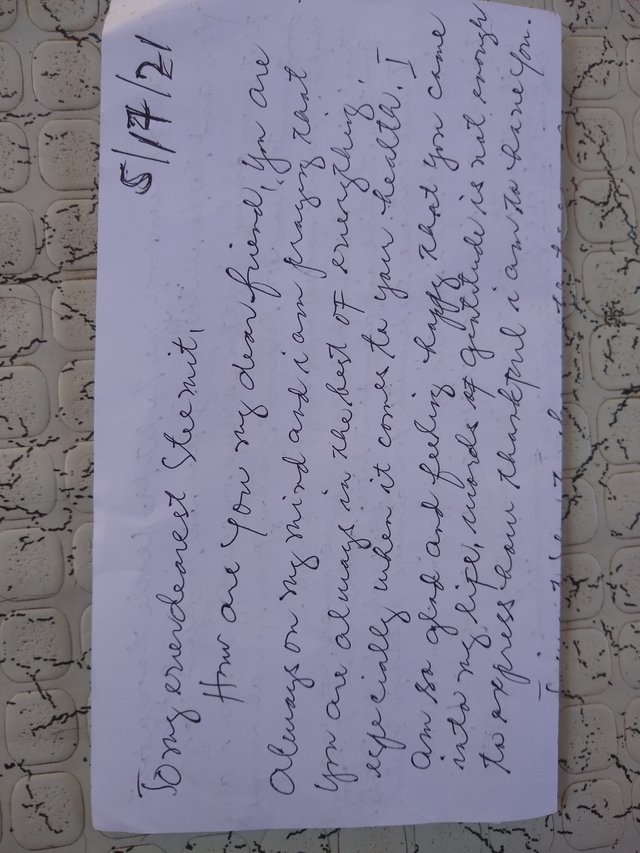 5/17/21
To my ever dearest Steemit,
How are you my dear friend, You are
Always on my mind and i am praying that
you are always in the best of everything
especially when it comes to your health. I
am so glad and feeling happy that you came
into my life, words of gratitude is not enough
to express how thankful i am to have you.